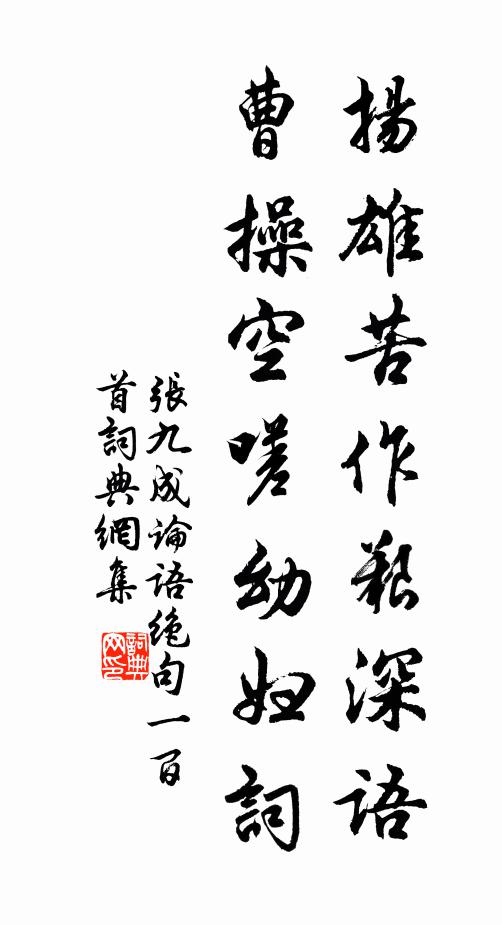 揚雄苦作艱深語
曹操空嗟幼婦詞
張九成論語絶句一百
首詞典網集
詞典
网印